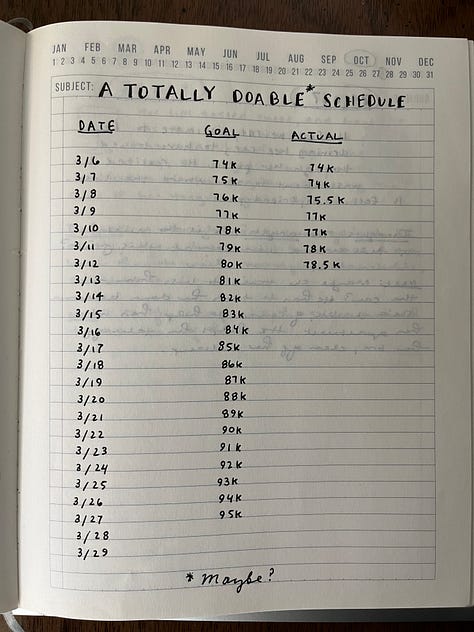 JAN FEB MAR APR MAY JUN JUL AUG SEP OCT NOV DEC
1 2 3 4 5 6 7 8 9 10 11 12 13 14 15 16 17 18 19 20 21 22 23 24 25 26 27 28 29 30 31
SUBJECT: A TOTALLY DOABLE* SCHEDULE
DATE GOAL ACTUAL
3/6 74K 74K
3/7 75K 74K
3/8 76K 75.5K
3/9 77K 77K
3/10 78K 77K
3/11 79K 78K
3/12 80K 78.5K
3/13 81K
3/14 82K
3/15 83K
3/16 84K
3/17 85K
3/18 86K
3/19 87K
3/20 88K
3/21 89K
3/22 90K
3/23 91K
3/24 92K
3/25 93K
3/26 94K
3/27 95K
3/28
3/29
* Maybe?